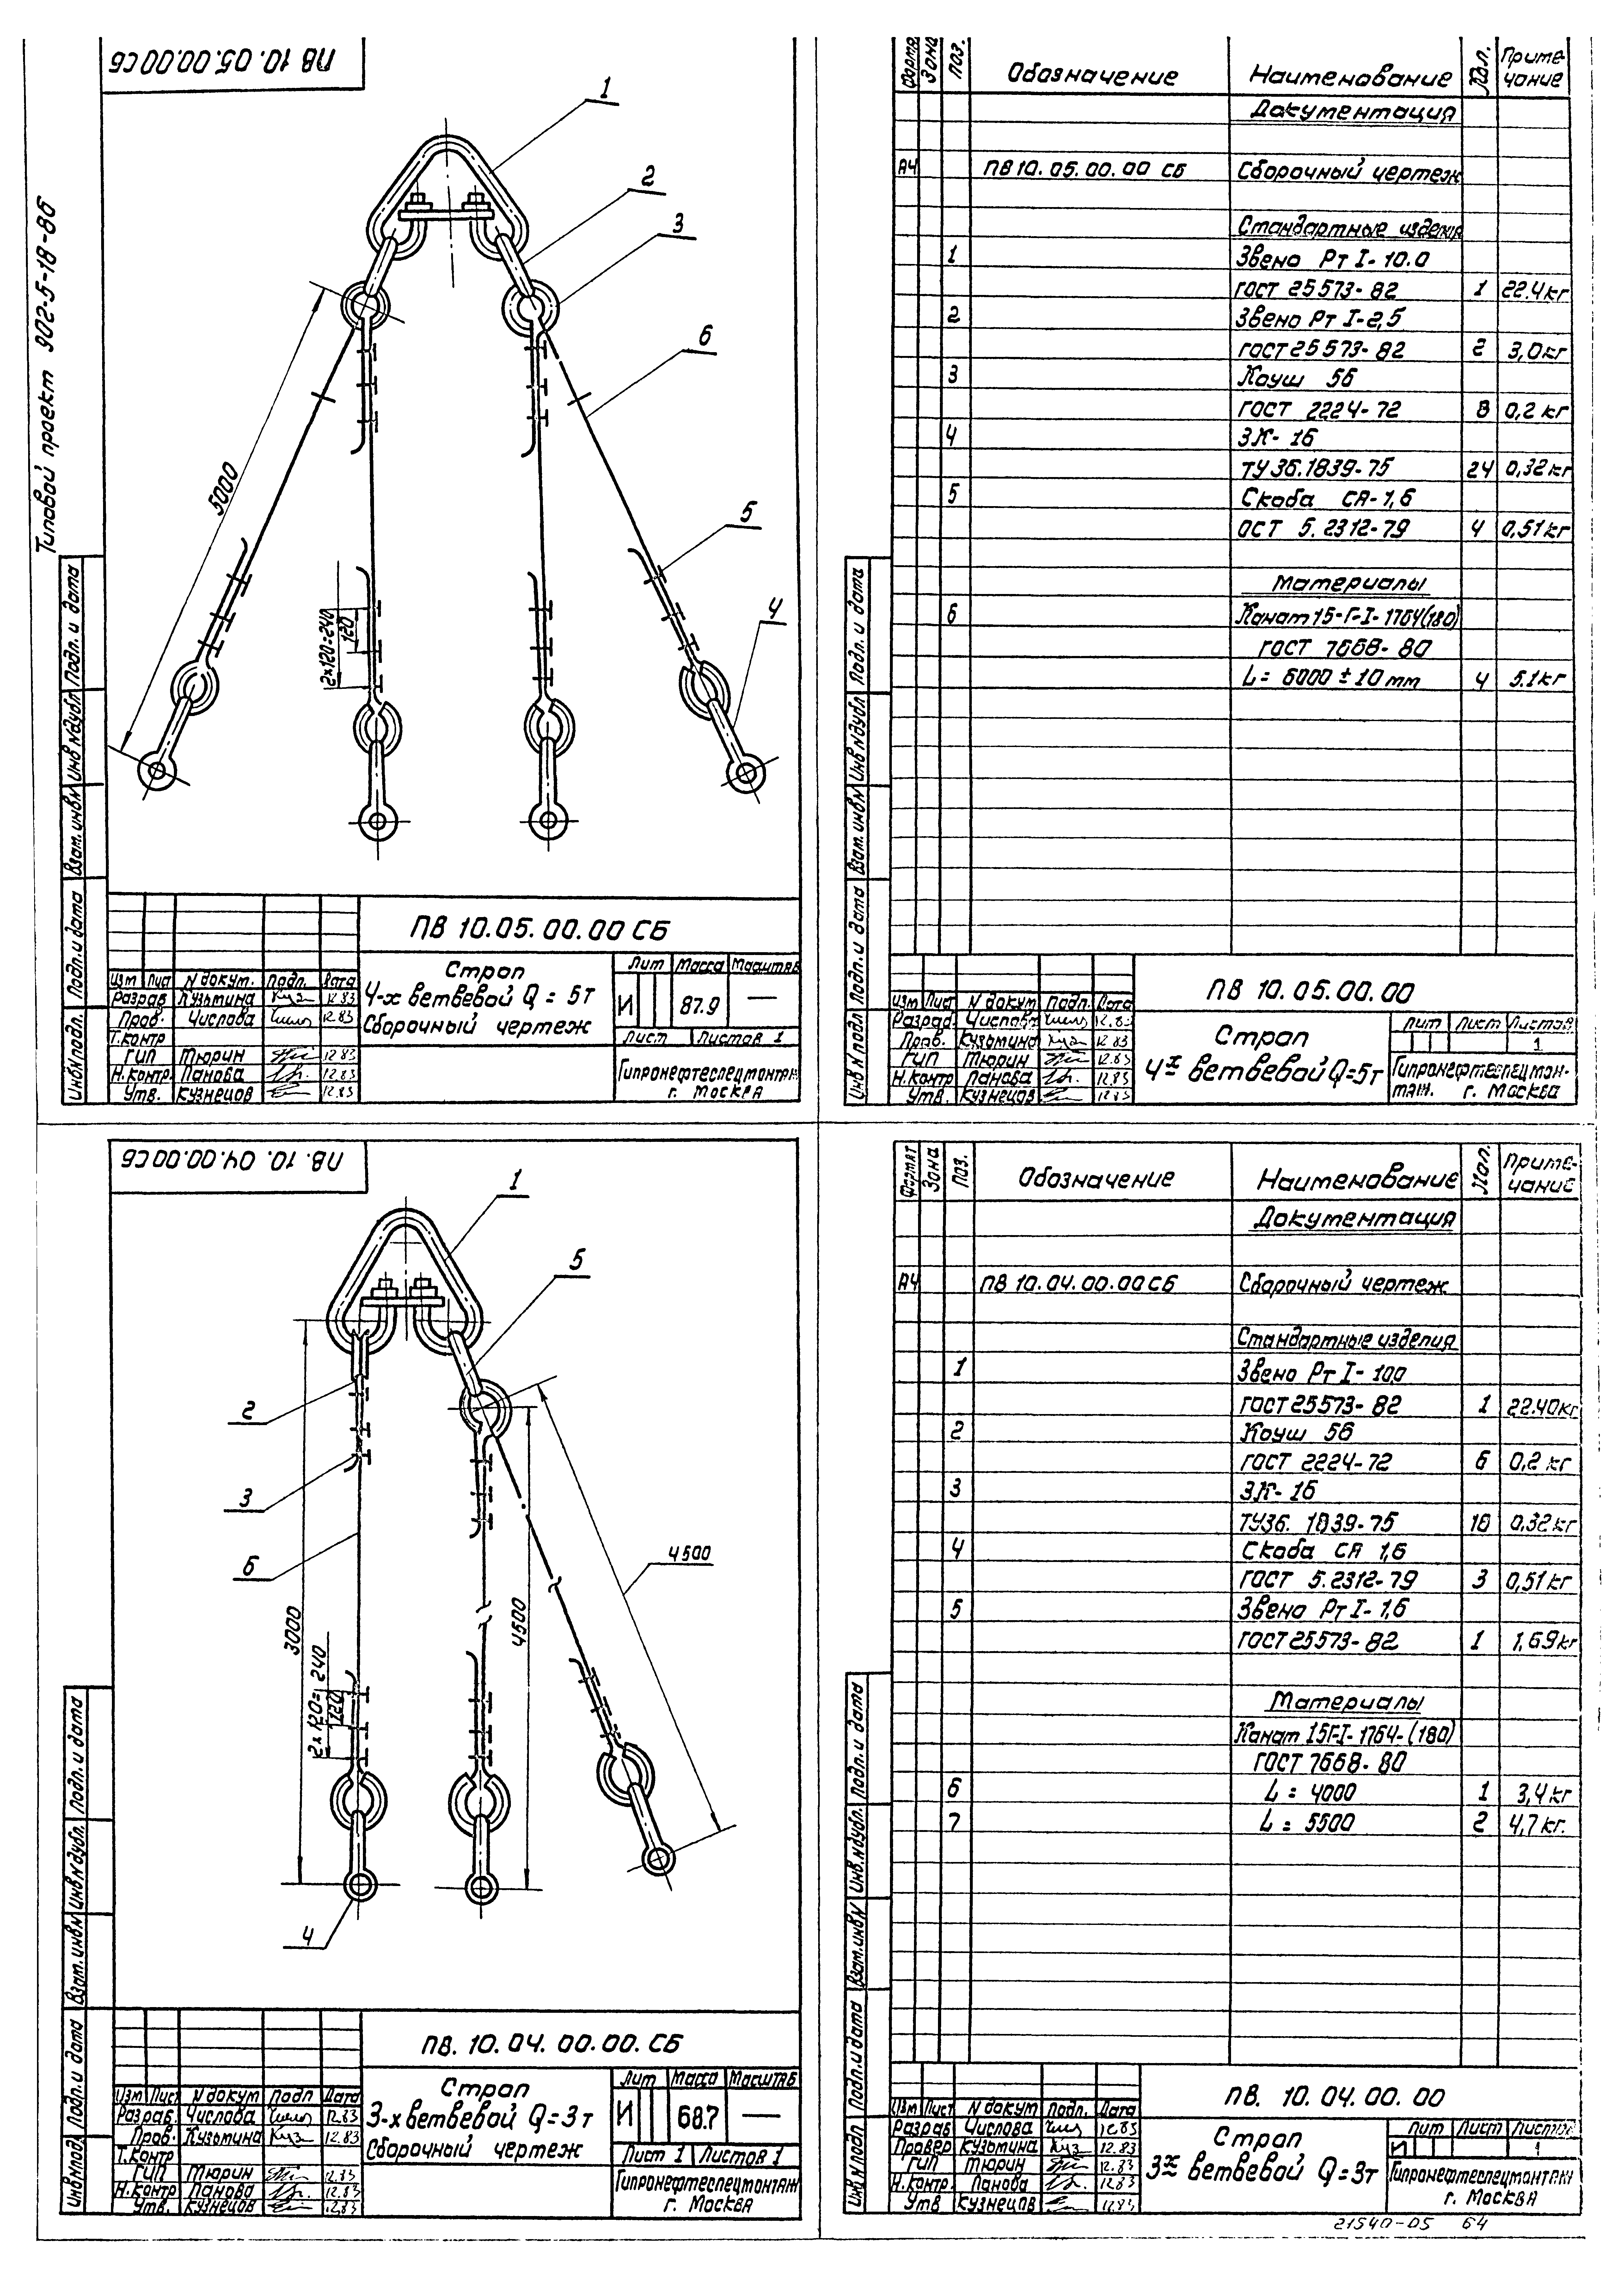 Типовой проект 902-5-18-86
ПВ 10.05.00.00 СБ
1
2
3
6
5
4
5000
2×120=240
120
Подп. и дата
Инв N дубл
Взам. инв N
Подп. и дата
Инв N подл.
ПВ 10.05.00.00 СБ
Изм Лист N докум. Подп. Дата
Разраб Кузьмина 12.83
Пров. Числова 12.83
Т.контр
ГИП Тюрин 12.83
Н.контр. Панова 12.83
Утв. Кузнецов 12.83
Строп
4-х ветвевой Q = 5т
Сборочный чертеж
Лит Масса Масштаб
И 87.9 —
Лист Листов 1
Гипронефтеспецмонтаж
г. Москва
Формат Зона Поз. Обозначение Наименование Кол. Примечание
Документация
А4 ПВ 10.05.00.00 СБ Сборочный чертеж
Стандартные изделия
1 Звено Рт I-10.0
ГОСТ 25573-82 1 22.4кг
2 Звено Рт I-2,5
ГОСТ 25573-82 2 3,0кг
3 Коуш 56
ГОСТ 2224-72 8 0,2 кг
4 ЗК-16
ТУ 36.1839-75 24 0,32кг
5 Скоба СА-1,6
ОСТ 5.2312-79 4 0,51кг
Материалы
6 Канат 15-Г-I-1764(180)
ГОСТ 7668-80
L= 6000 ± 10 мм 4 5.1кг
Подп. и дата
Инв N дубл
Взам. инв N
Подп. и дата
Инв N подл
ПВ 10.05.00.00
Изм Лист N докум Подп. Дата
Разраб. Числова 12.83
Пров. Кузьмина 12.83
ГИП Тюрин 12.83
Н.контр Панова 12.83
Утв. Кузнецов 12.83
Строп
4х ветвевой Q=5т
Лит Лист Листов
1
Гипронефтеспецмон-
таж. г. Москва
ПВ. 10.04.00.00 СБ
1
5
2
3
6
4
3000
2×120=240
120
4500
4500
Подп. и дата
Инв. N дубл.
Взам. инв N
Подп. и дата
Инв N подл
ПВ. 10.04.00.00.СБ
Изм Лист N докум Подп Дата
Разраб. Числова 12.83
Пров. Кузьмина 12.83
Т.контр
ГИП Тюрин 12.83
Н.контр Панова 12.83
Утв. Кузнецов 12.83
Строп
3-х ветвевой Q=3т
Сборочный чертеж
Лит Масса Масштаб
И 68.7 —
Лист 1 Листов 1
Гипронефтеспецмонтаж
г. Москва
Формат Зона Поз. Обозначение Наименование Кол. Примечание
Документация
А4 ПВ 10.04.00.00 СБ Сборочный чертеж
Стандартные изделия
1 Звено Рт I-10,0
ГОСТ 25573-82 1 22.40кг
2 Коуш 56
ГОСТ 2224-72 6 0,2 кг
3 ЗК-16
ТУ36.1839-75 18 0,32кг
4 Скоба СА 1,6
ГОСТ 5.2312-79 3 0,51кг
5 Звено Рт I-1,6
ГОСТ 25573-82 1 1,69кг
Материалы
Канат 15Г-I-1764-(180)
ГОСТ 7668-80
6 L = 4000 1 3,4кг
7 L = 5500 2 4,7кг.
Подп. и дата
Инв. N дубл.
Взам. инв N
Подп. и дата
Инв. N подл
ПВ. 10.04.00.00
Изм Лист N докум Подп. Дата
Разраб Числова 12.83
Провер Кузьмина 12.83
ГИП Тюрин 12.83
Н.контр Панова 12.83
Утв Кузнецов 12.83
Строп
3х ветвевой Q=3т
Лит Лист Листов
И 1
Гипронефтеспецмонтаж
г. Москва
21540-05 64